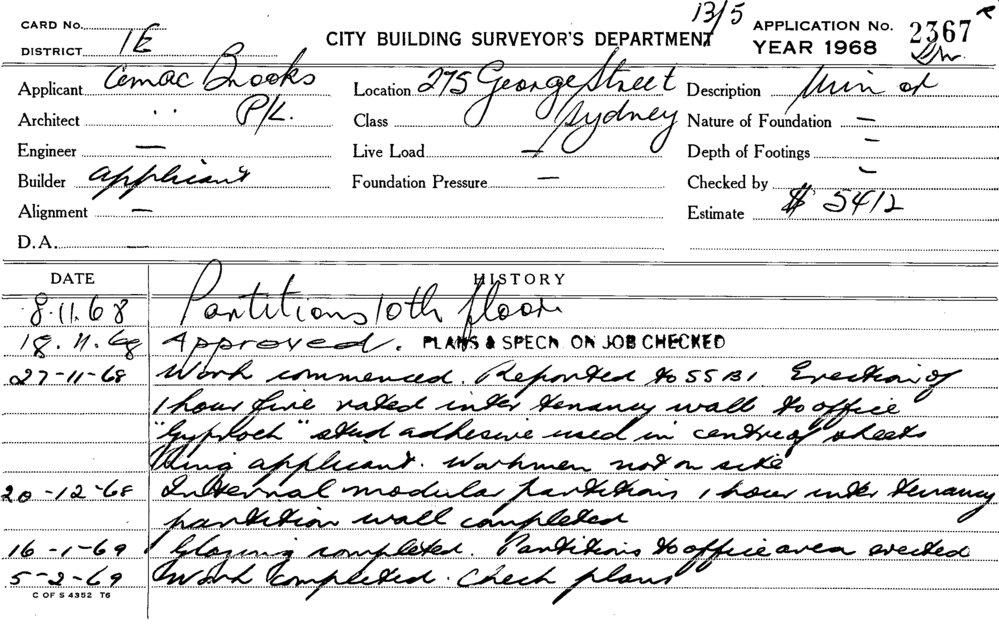 CARD No. 13/5 APPLICATION No. 2367
DISTRICT 1E CITY BUILDING SURVEYOR'S DEPARTMENT YEAR 1968
Applicant Cemac Brooks Location 275 George Street Description
Architect " P/L. Class Sydney Nature of Foundation —
Engineer — Live Load — Depth of Footings —
Builder applicant Foundation Pressure — Checked by —
Alignment — Estimate $ 5412
D.A. —
DATE HISTORY
8.11.68 Partitions 10th floor
18.11.68 Approved. PLANS & SPECN. ON JOB CHECKED
27-11-68 Work commenced. Reported to SSBI. Erection of
1 hour fire rated inter tenancy wall to office
"Gyprock" stud adhesive used in centre of sheets
Ring applicant. Workmen not on site
20-12-68 Internal modular partitions 1 hour inter tenancy
partition wall completed
16-1-69 Glazing completed. Partitions to office area erected
5-2-69 Work completed. Check plans
C OF S 4352 T6